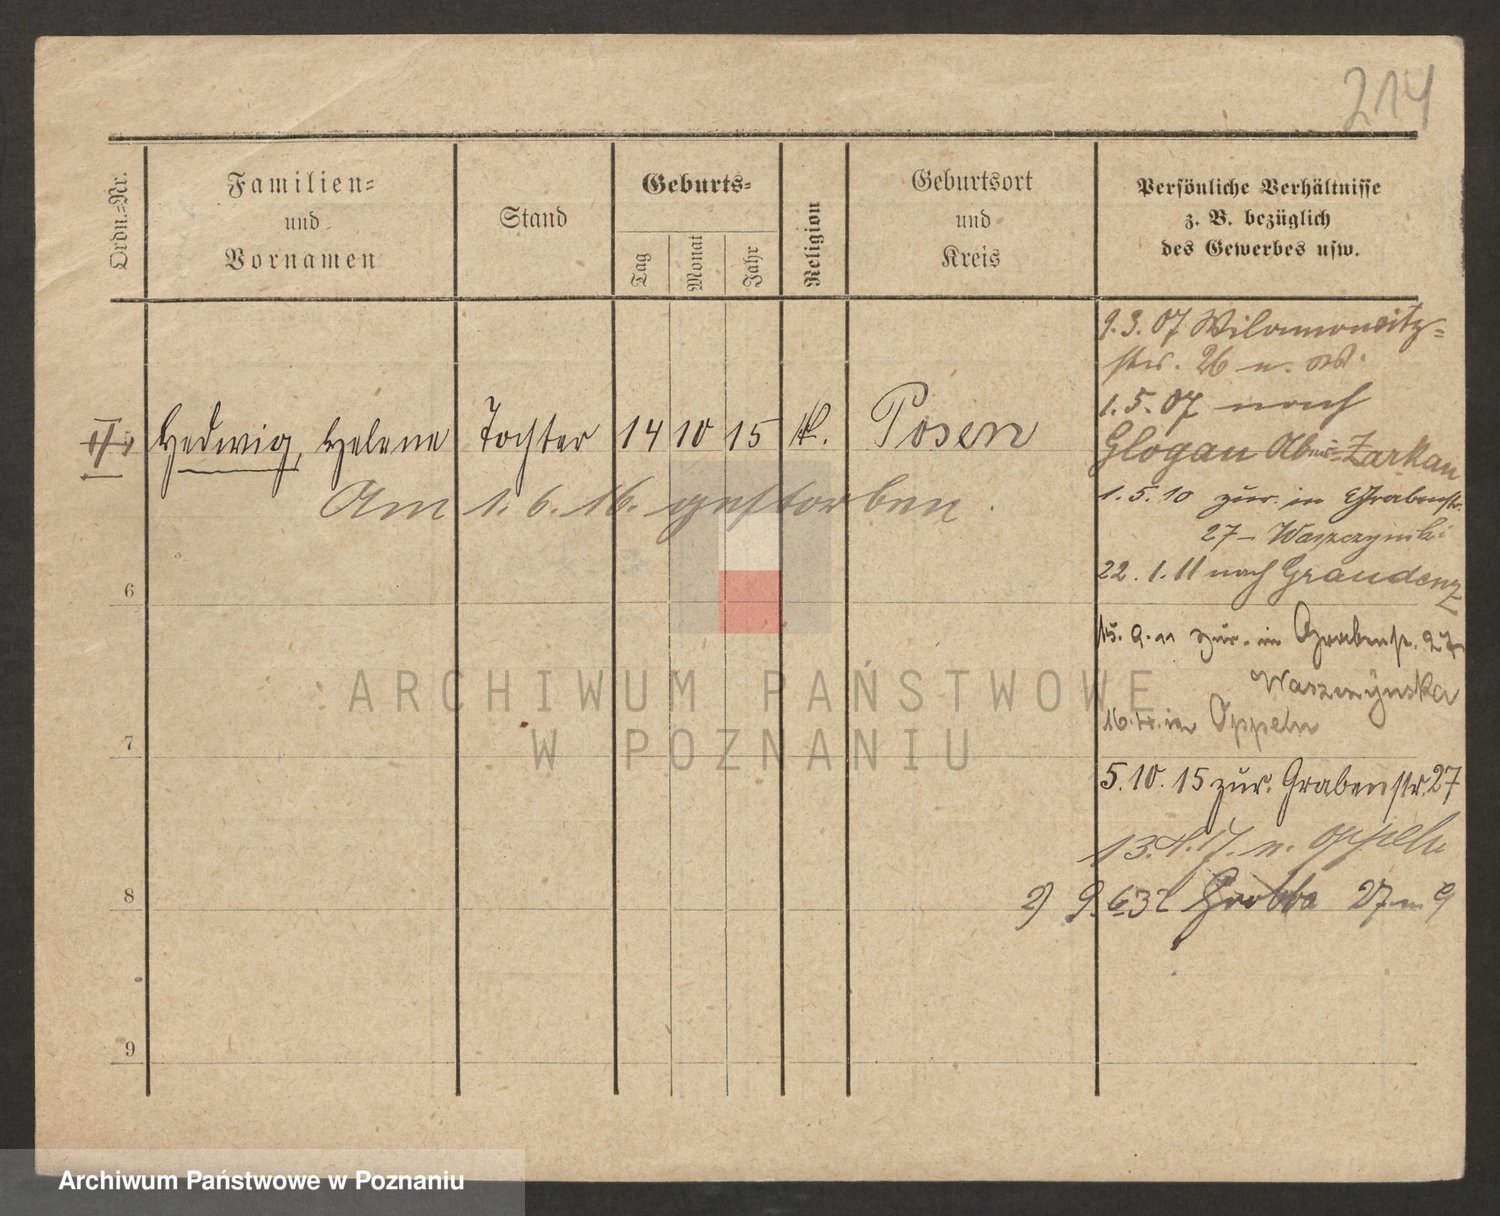 214
Ordn.=Nr.
Familien=
und
Vornamen
Stand
Geburts=
Tag
Monat
Jahr
Religion
Geburtsort
und
Kreis
Persönliche Verhältnisse
z. B. bezüglich
des Gewerbes usw.
5
Hedwig, Helene Tochter 14 10 15 k. Posen
Am 1. 6. 16. gestorben.
6
7
8
9
9. 3. 07 Wilamowitz=
str. 26 u.
1. 5. 07 nach
Glogau Zarkau
1. 5. 10 zur. in Grabenstr.
27 – Waszczynski
22. 1. 11 nach Graudenz
15. 9. 11 zur. in Grabenstr. 27
Waszczynska
16. in Oppeln
5. 10. 15 zur. Grabenstr. 27
13. 17. n. Oppeln
2) 9. 6 32 Grobla 27 m 9
ARCHIWUM PAŃSTWOWE
W POZNANIU
Archiwum Państwowe w Poznaniu